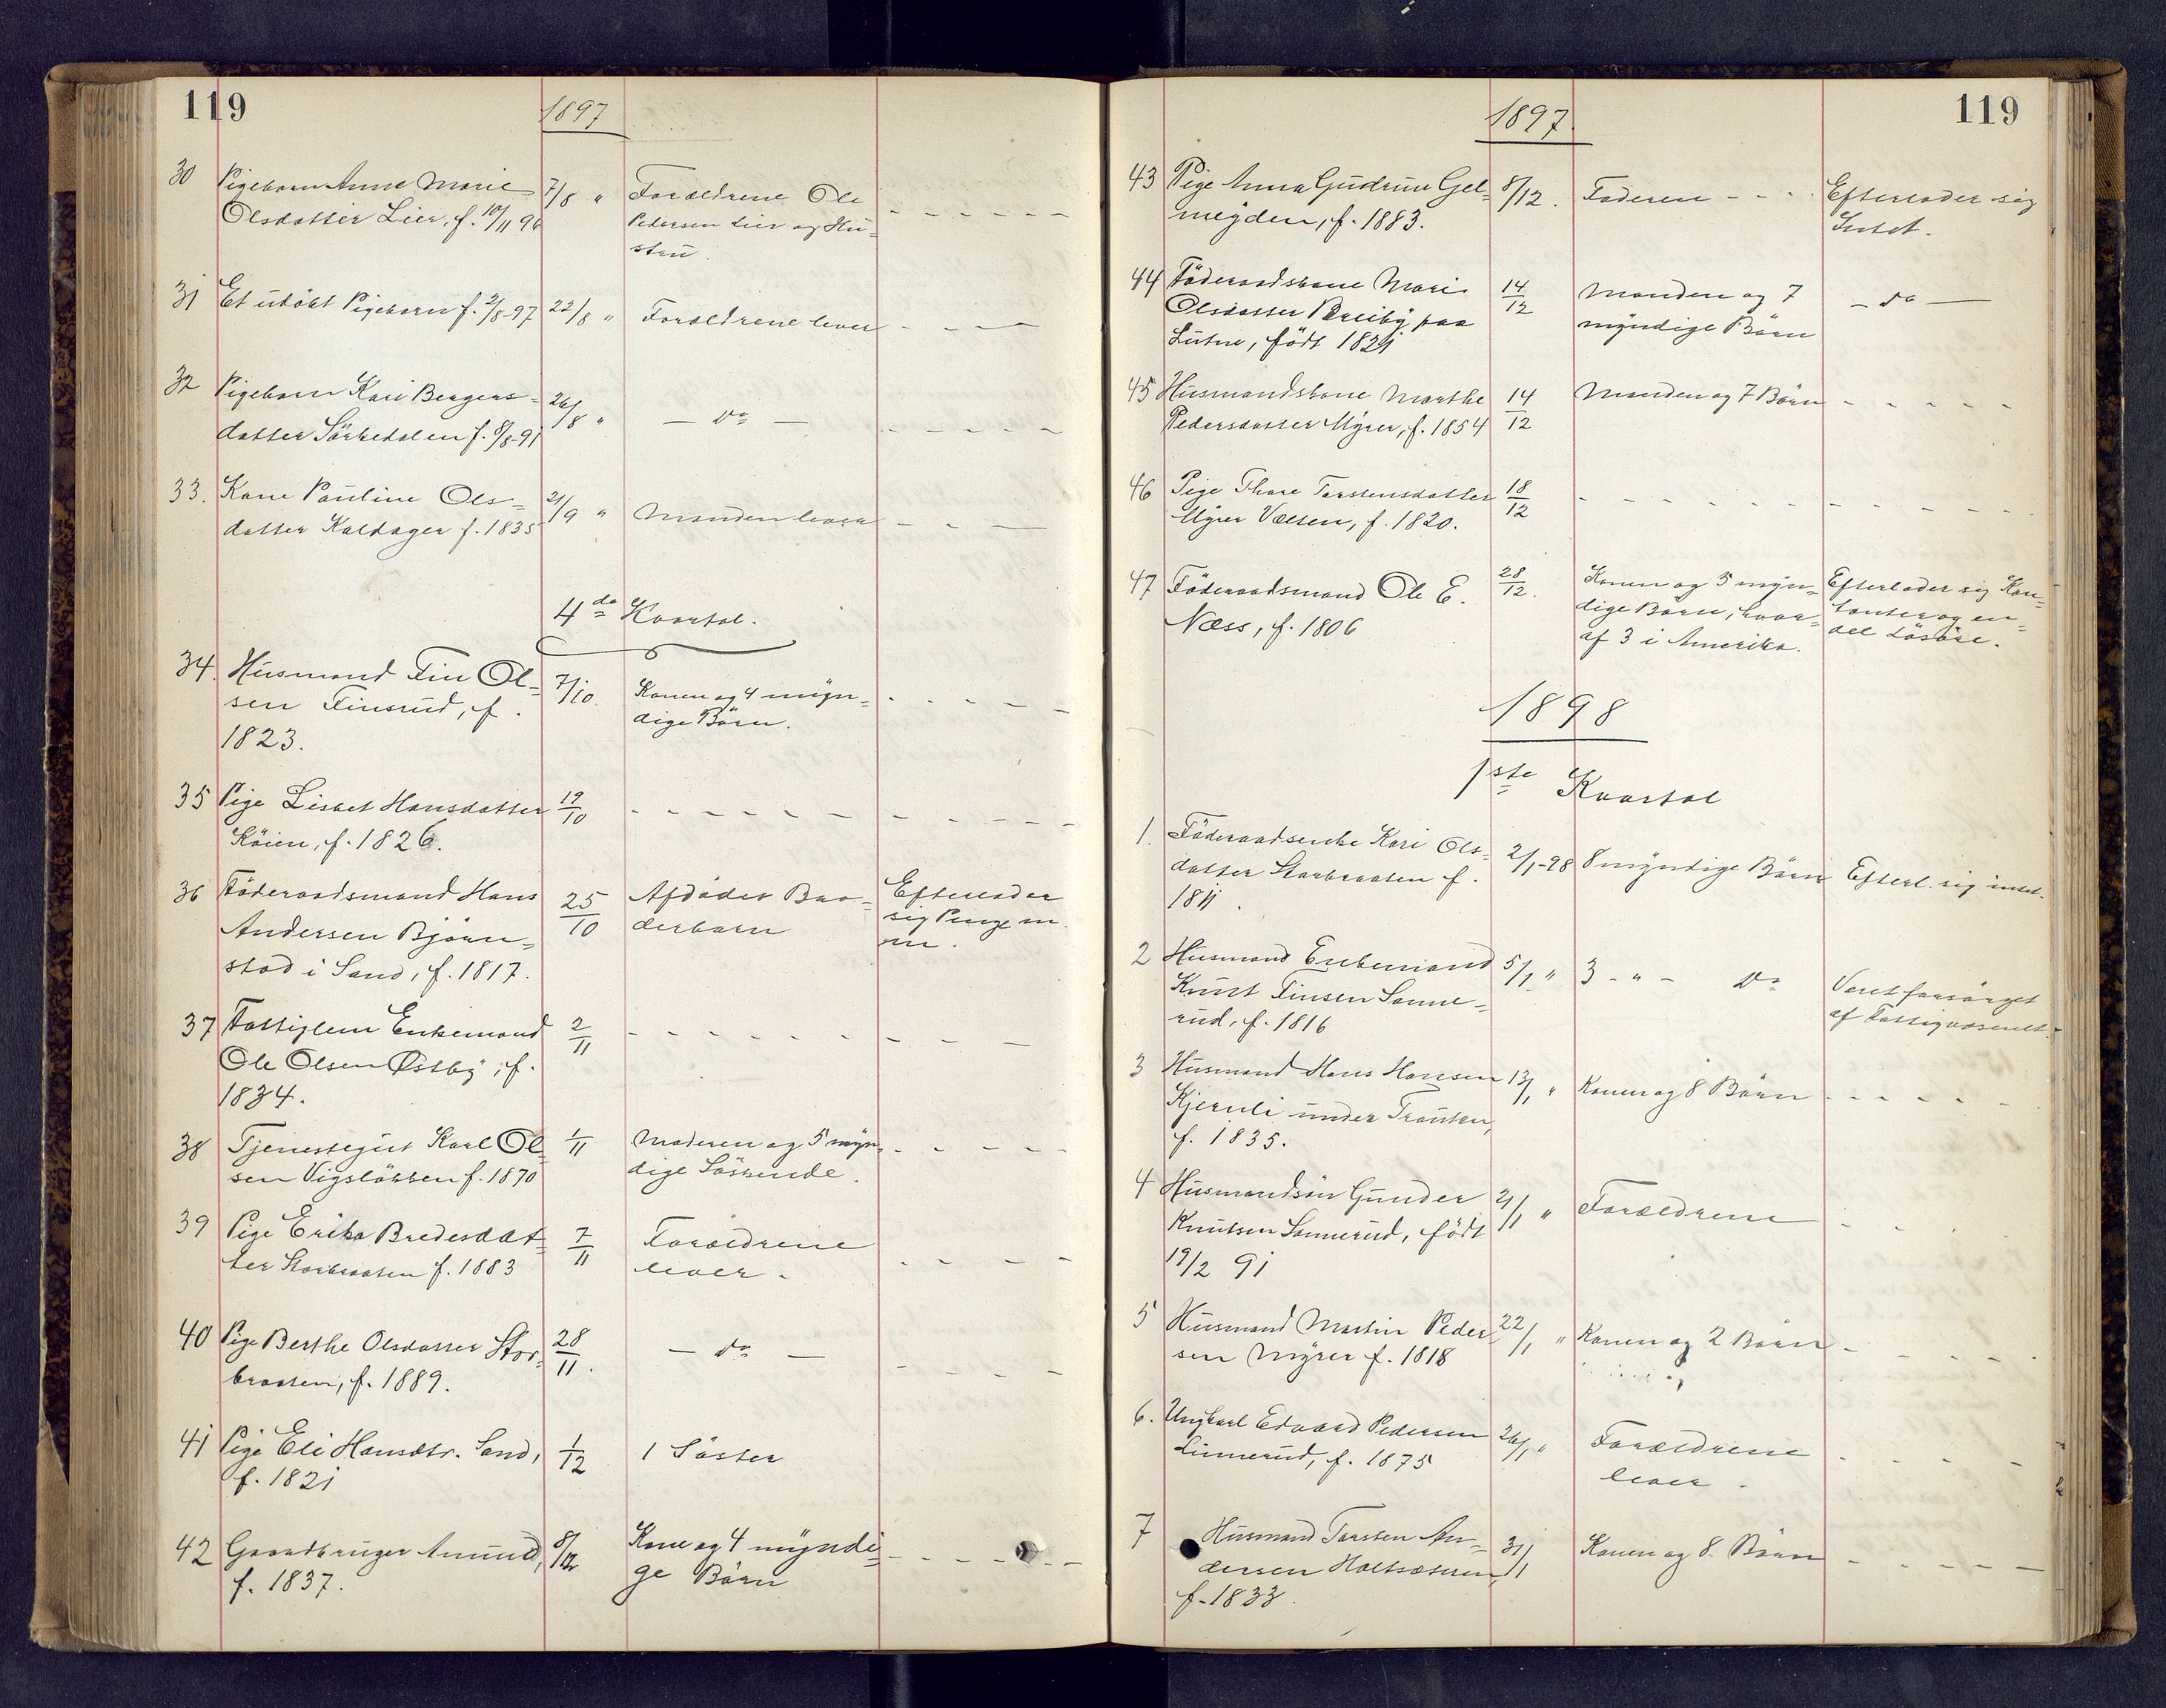 119
1897
30 Pigebarn Anne Marie 7/8 " Forældrene Ole - - - - - -
Olsdatter Lier, f. 10/11 96 Pedersen Lier og Hu-
stru.
31 Et udöbt Pigebarn f. 2/8-97 22/8 " Forældrene lever - - -
32 Pigebarn Kari Bergers-
datter Sörkedalen f. 8/8-91 26/8 " — do — - - - - -
33. Kone Pauline Ols-
datter Kaldager f. 1835 21/9 " Manden lever - - -
4de Kvartal.
34. Husmand Fin Ol-
sen Finsrud, f. 7/10. Konen og 4 myn-
1823. dige Börn.
35 Pige Lisbet Hansdatter 19/10 - - - - - - - - - -
Köien, f. 1826.
36 Föderaadsmand Hans 25/10 Afdödes Bro- Efterlader
Andersen Bjørn- derbarn sig Penge m.
stad i Sand, f. 1817. m.
37 Fattiglem Enkemand 2/11 - - - - - - - -
Ole Olsen Østby, f.
1834.
38 Tjenestegut Karl Ol- 1/11 Moderen og 5 myn- - - - -
sen Vigslökken f. 1870 dige Söskende.
39 Pige Erika Bredesdat- 7/11 Forældrene - - - -
ter Storbraaten f. 1883 lever.
40 Pige Berthe Olsdatter Stor- 28/11. — do — - - - -
braaten, f. 1889.
41 Pige Eli Hansdtr. Sand, 1/12 1 Söster
f. 1821
42 Gaardbruger Amund, 8/12 Kone og 4 myndi- - - - - -
f. 1837. ge Börn
119
1897.
43 Pige Anna Gudrun Gel- 8/12. Faderen - - - Efterlader sig
meyden, f. 1883. Intet.
44 Föderaadskone Mari 14/12 Manden og 7 — do —
Olsdatter Breiby paa myndige Börn
Lutne, födt 1821
45 Husmandskone Marthe 14/12 Manden og 7 Börn - - - - -
Pedersdatter Myrer, f. 1854
46 Pige Thore Torstensdatter 18/12 - - - - - - - - - -
Myrer Vælsen, f. 1820.
47 Föderaadsmand Ole E. 28/12. Konen og 5 myn- Efterlader sig Kon-
Næss, f. 1806 dige Börn, hvor- tanter og en-
af 3 i Amerika. del Lösöre.
1898
1ste Kvartal
1. Föderaadsenke Kari Ols- 2/1-98 8 myndige Börn Efterl. sig intet.
datter Storbraaten f.
1811.
2 Husmand Enkemand 5/1 " 3 - " - Do Været forsörget
Knut Finsen Sonne- af Fattigvæsenet.
rud, f. 1816
3 Husmand Hans Hansen 13/1 " Konen og 8 Börn - - - - -
Kjernli under Tronken,
f. 1835.
4 Husmandsön Gunder 21/1 " Forældrene - - -
Knutsen Sonnerud, födt
19/2 91
5 Husmand Martin Peder- 22/1 " Konen og 2 Börn - - - -
sen Myrer f. 1818
6. Ungkarl Edvard Pedersen 26/1 " Forældrene - - - -
Linnerud, f. 1875 lever.
7 Husmand Torsten An- 31/1 Konen og 8 Börn - - - - -
dersen Holtsæteren,
f. 1833.